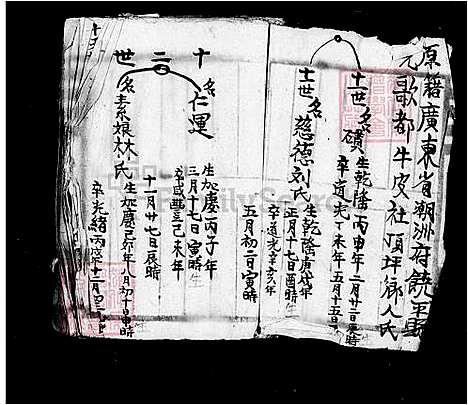 原籍廣東省潮洲府饒平縣
元歌都牛皮社頂坪鄉人氏
十一世名礦生乾隆丙申年二月廿二日吏時
卒道光丁未年五月十五日
十一世名慈德刘氏生乾隆庚戌年
正月十七日酉時
卒道光辛亥年
五月初二日寅時
十二世
名仁運
生加慶丙子年
三月十七日寅時生
卒咸豐己未年
十一月廿七日辰時
名素娘林氏生加慶己卯年八月初十日寅時
卒光緒丙戌年十二月初三
FamilySearch